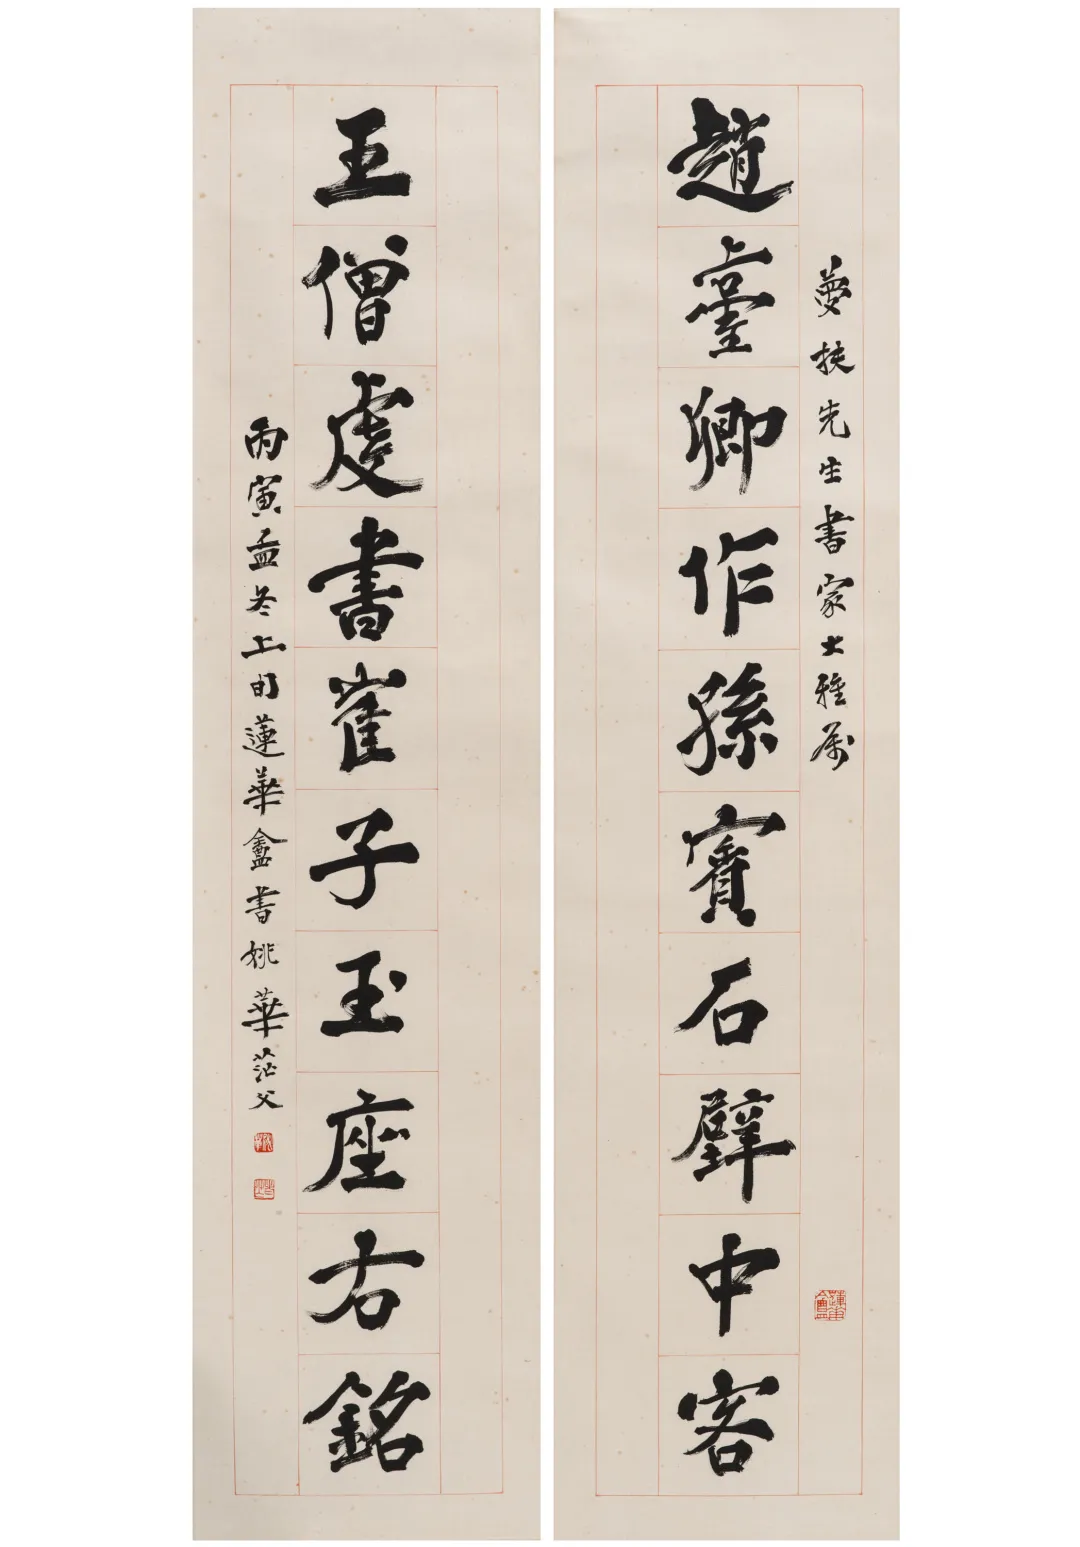 趙臺卿作孫賓石壁中客
夢扶先生書家大雅屬
王僧虔書崔子玉座右銘
丙寅孟冬上旬蓮華盦書姚華茫父